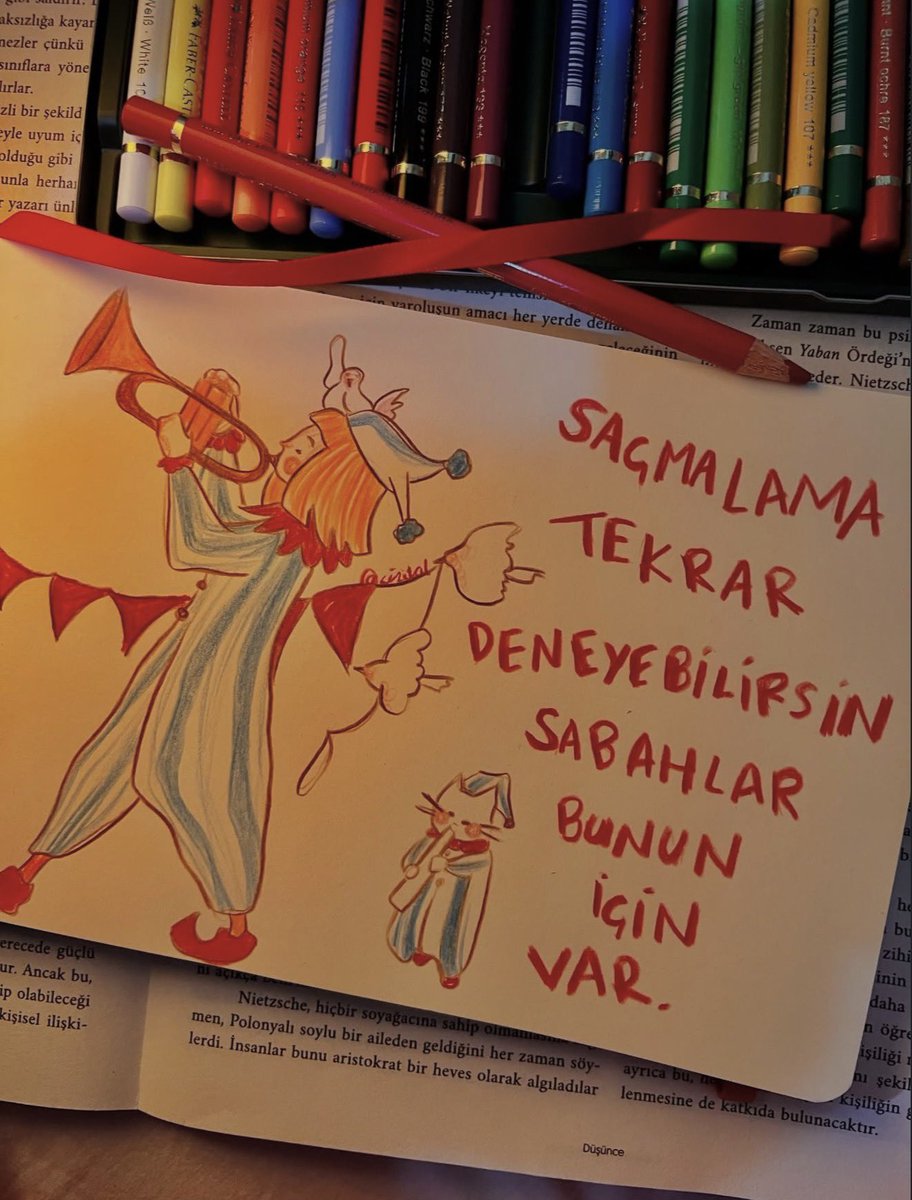 aksızlığa kayar
nezler çünkü
sınıflara yöne
lırlar.
zli bir şekild
eyle uyum iç
olduğu gibi
unla herhaı
r yazarı ünl
Weiß · White 10
FABER CASTE
chwarz · Black 199 ***
Magenta 133 ***
Cadmium yellow 107 ***
Burnt ochre 187 ***
varoluşun amacı her yerde
Zaman zaman bu psi
sen Yaban Ördeği'n
eder. Nietzsch
SAÇMALAMA
TEKRAR
DENEYEBİLİRSİN
SABAHLAR
BUNUN
İÇİN
VAR.
erecede güçlü
ur. Ancak bu,
ip olabileceği
kişisel ilişki-
Nietzsche, hiçbir soyağacına sahip
men, Polonyalı soylu bir aileden geldiğini her zaman söy-
lerdi. İnsanlar bunu aristokrat bir heves olarak algıladılar
ayrıca bu,
kişiliğin g
lenmesine de katkıda bulunacaktır.
Düşünce